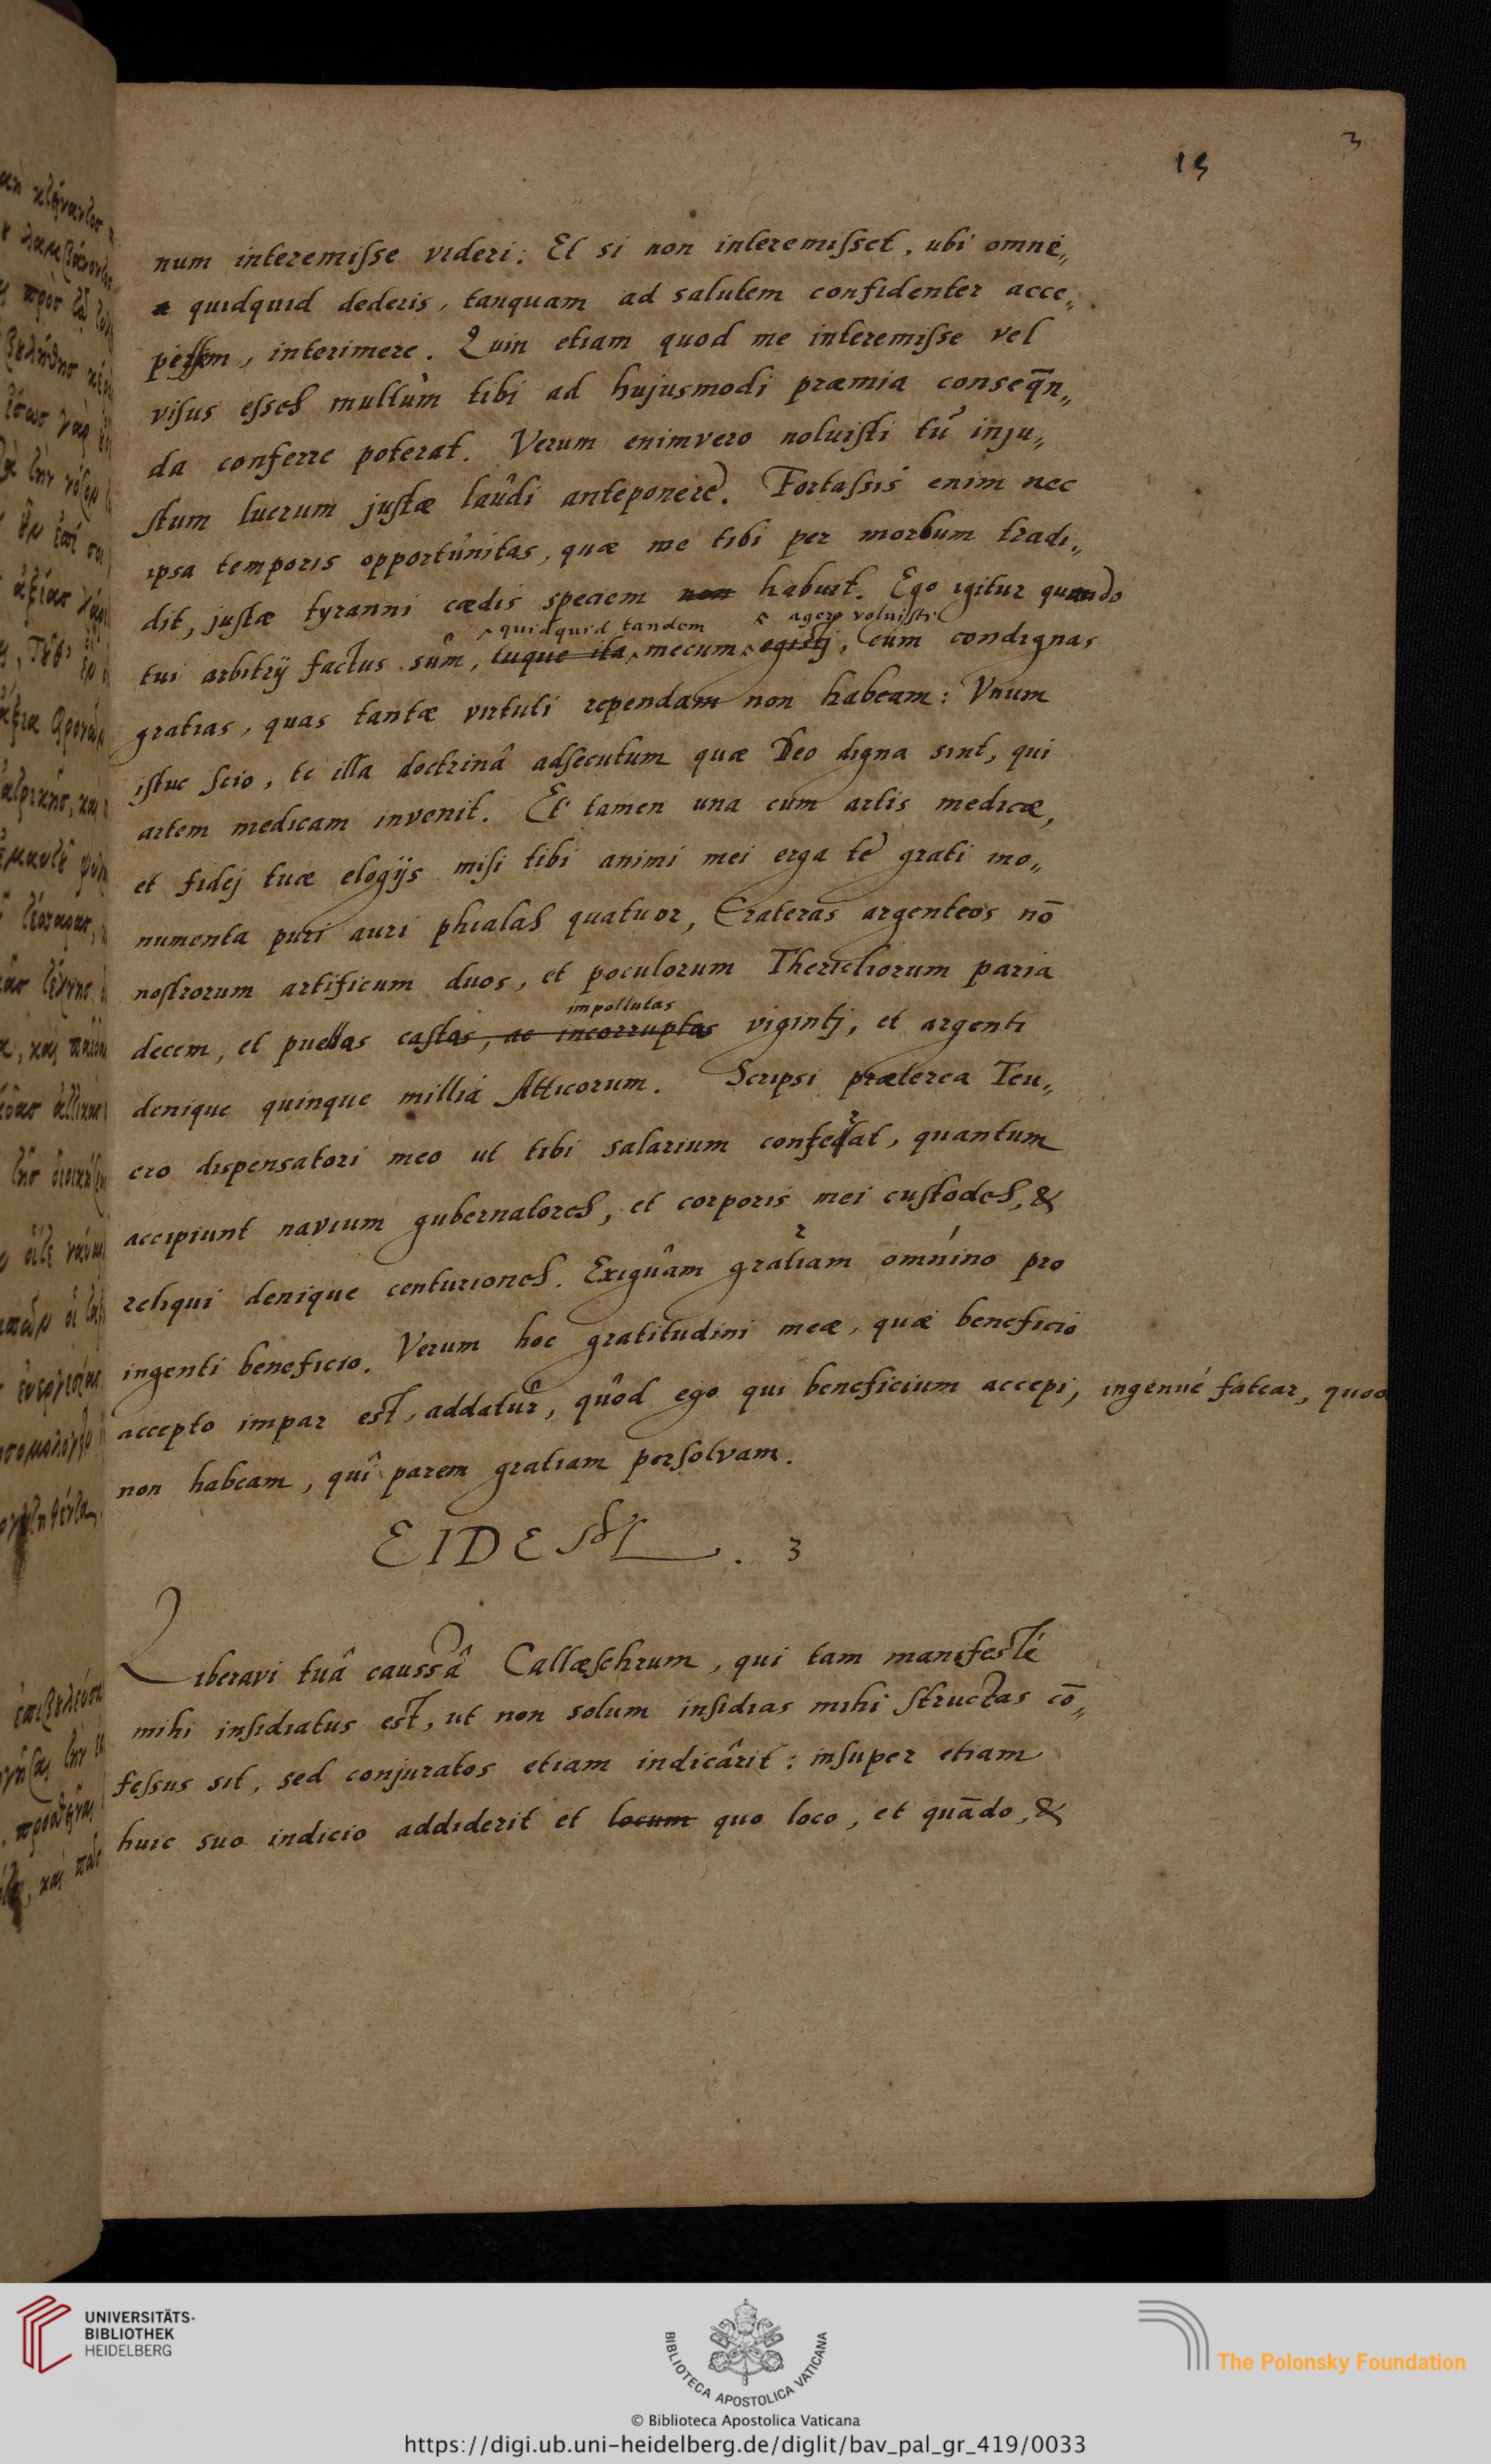 3
15
num interemisse videri: Et si non interemisset, ubi omne„
quidquid dederis, tanquam ad salutem confidenter acce„
pissem, interimere. Quin etiam quod me interemisse vel
visus esses multùm tibi ad hujusmodi præmia conseq̄n„
da conferre poterat. Verum enimvero noluisti tu inju„
stum lucrum justæ laudi anteponere. Fortassis enim nec
ipsa temporis opportunitas, quæ me tibi per morbum tradi„
dit, justæ tyranni cædis speciem non habuit. Ego igitur quando
quidquid tandem agere voluisti
tui arbitrij factus sum, tuque ita mecum egisti, cum condignas
gratias, quas tantæ virtuti rependam non habeam: Vnum
istuc scio, te illa doctrinâ adsecutum quæ Deo digna sint, qui
artem medicam invenit. Et tamen una cum artis medicæ,
et fidej tuæ elogijs misi tibi animi mei erga te grati mo„
numenta puri auri phialas quatuor, Crateras argenteos nō
nostrorum artificum duos, et poculorum Thericliorum paria
impollutas
decem, et puellas castas, ac incorruptas vigintj, et argenti
denique quinque millia Atticorum. Scripsi præterea Teu„
cro dispensatori meo ut tibi salarium conferat, quantum
accipiunt navium gubernatores, et corporis mei custodes, &
reliqui denique centuriones. Exiguâm gratiam omnino pro
ingenti beneficio. Verum hoc gratitudini meæ, quæ beneficio
accepto impar est, addatur, quôd ego qui beneficium accepi, ingenué fatear, quod
non habeam, quî parem gratiam persolvam.
EIDEM. 3
Liberavi tuâ caussâ Callæschrum, qui tam manifesté
mihi insidiatus est, ut non solum insidias mihi structas cō„
fessus sit, sed conjuratos etiam indicârit: insuper etiam
huic suo indicio addiderit et locum quo loco, et quādo, &
UNIVERSITÄTS-
BIBLIOTHEK
HEIDELBERG
BIBLIOTECA APOSTOLICA VATICANA
The Polonsky Foundation
© Biblioteca Apostolica Vaticana
https://digi.ub.uni-heidelberg.de/diglit/bav_pal_gr_419/0033